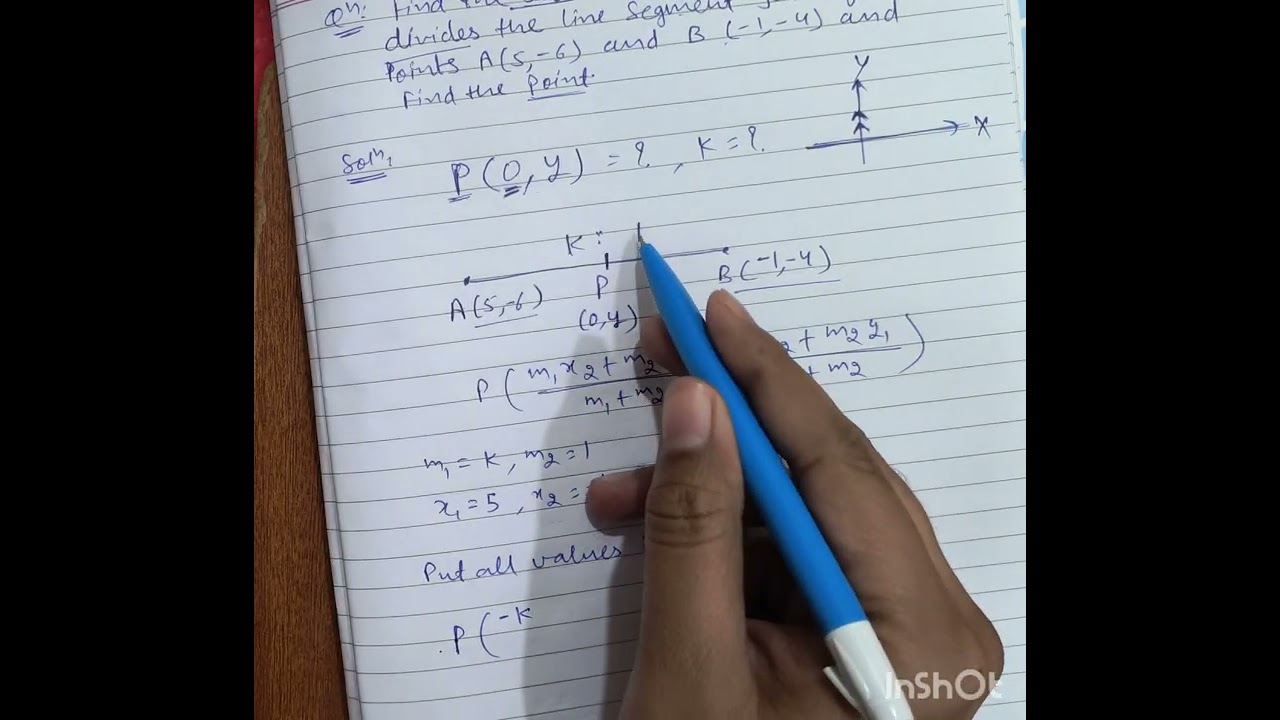 Qⁿ: Find the
divides the line segment
Points A(5,-6) and B (-1,-4) and
Find the Point.
Y
X
Solⁿ,
P(0,y) = ?, K = ?
K : 1
A(5,-6)
P
B(-1,-4)
(0,y)
P( m₁x₂ + m₂ / m₁ + m₂ ₂ + m₂y₁ / + m₂ )
m₁ = K, m₂ = 1
x₁ = 5, x₂ =
Put all values
P( -K
InShOt